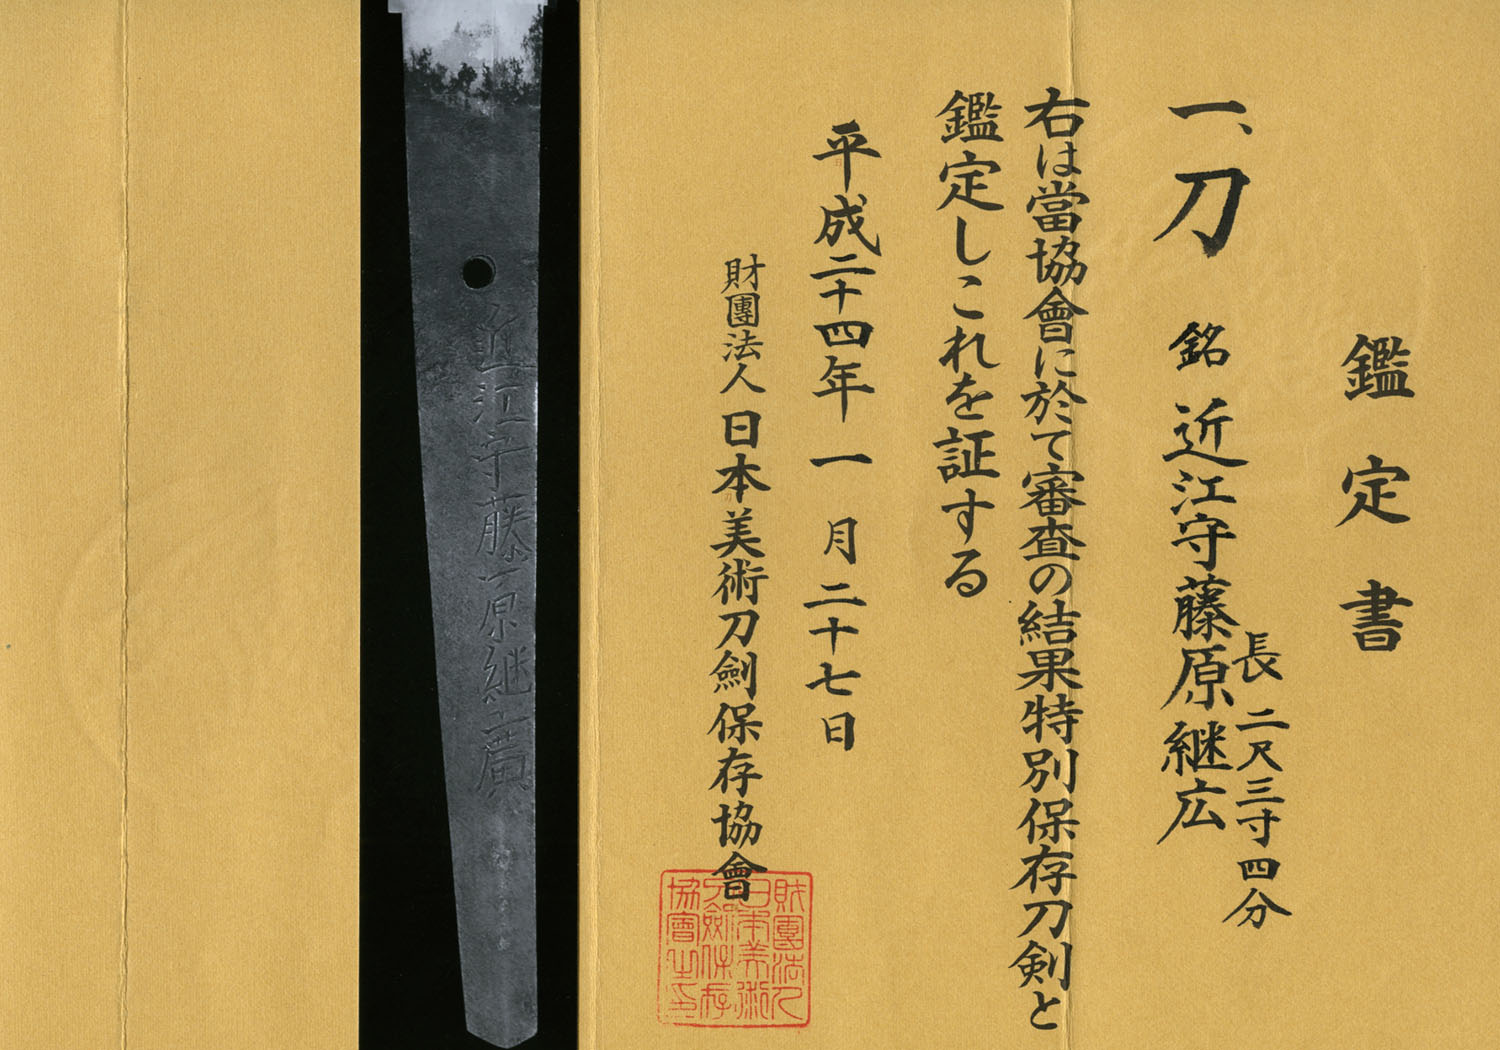 鑑定書
一、刀 銘 近江守藤原継広
長 二尺三寸四分
右は當協會に於て審査の結果特別保存刀剣と
鑑定しこれを証する
平成二十四年一月二十七日
財團法人日本美術刀劍保存協會
財團法人
日本美術
刀劍保存
協會之印
近江守藤原継廣